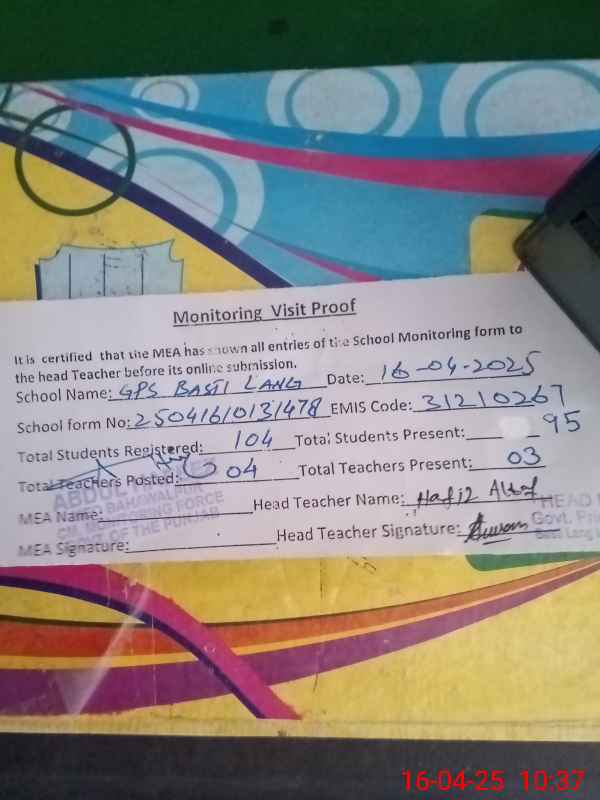 Monitoring Visit Proof
It is certified that the MEA has shown all entries of the School Monitoring form to
the head Teacher before its online submission.
School Name: GPS BASTI LANG Date: 16-04-2025
School form No: 25041610131478 EMIS Code: 31210267
Total Students Registered: 104 Total Students Present: 95
Total Teachers Posted: 04 Total Teachers Present: 03
MEA Name: Head Teacher Name: Hafiz Altaf
MEA Signature: Head Teacher Signature:
ABDUL
BAHAWALPUR
CM MONITORING FORCE
GOVT. OF THE PUNJAB
HEAD
Govt. Pri
Basti Lang
16-04-25 10:37